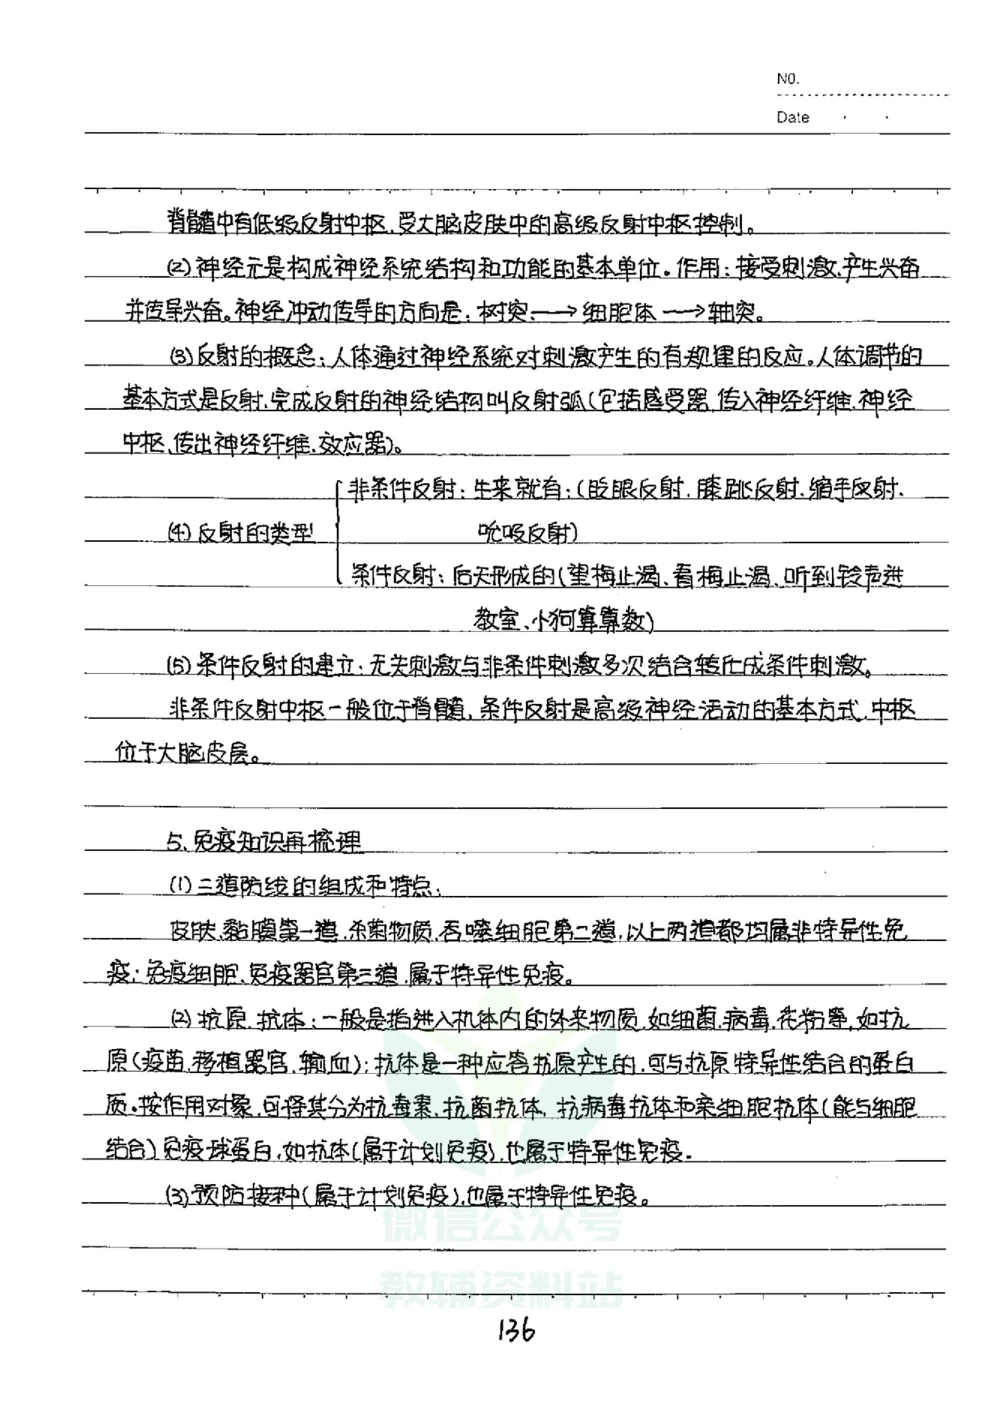 NO.
Date
脊髓中有低级反射中枢,受大脑皮肤中的高级反射中枢控制。
(2)神经元是构成神经系统结构和功能的基本单位。作用:接受刺激,产生兴奋
并传导兴奋。神经冲动传导的方向是:树突→细胞体→轴突。
(3)反射的概念:人体通过神经系统对刺激产生的有规律的反应。人体调节的
基本方式是反射,完成反射的神经结构叫反射弧(包括感受器、传入神经纤维、神经
中枢、传出神经纤维、效应器)。
非条件反射:生来就有:(眨眼反射、膝跳反射、缩手反射、
(4)反射的类型
吮吸反射)
条件反射:后天形成的(望梅止渴、看梅止渴、听到铃声进
教室、小狗算算数)
(5)条件反射的建立:无关刺激与非条件刺激多次结合转化成条件刺激。
非条件反射中枢一般位于脊髓,条件反射是高级神经活动的基本方式,中枢
位于大脑皮层。
5、免疫知识再梳理
(1)三道防线的组成和特点:
皮肤、黏膜第一道,杀菌物质、吞噬细胞第二道,以上两道都均属非特异性免
疫;免疫细胞、免疫器官第三道,属于特异性免疫。
(2)抗原、抗体:一般是指进入机体内的外来物质,如细菌、病毒、花粉等,如抗
原(疫苗、移植器官、输血);抗体是一种应答抗原产生的,可与抗原特异性结合的蛋白
质。按作用对象,可将其分为抗毒素、抗菌抗体、抗病毒抗体和亲细胞抗体(能与细胞
结合)免疫球蛋白,如抗体(属于计划免疫),也属于特异性免疫。
(3)预防接种(属于计划免疫),也属于特异性免疫。
微信公众号
教辅资料站
136